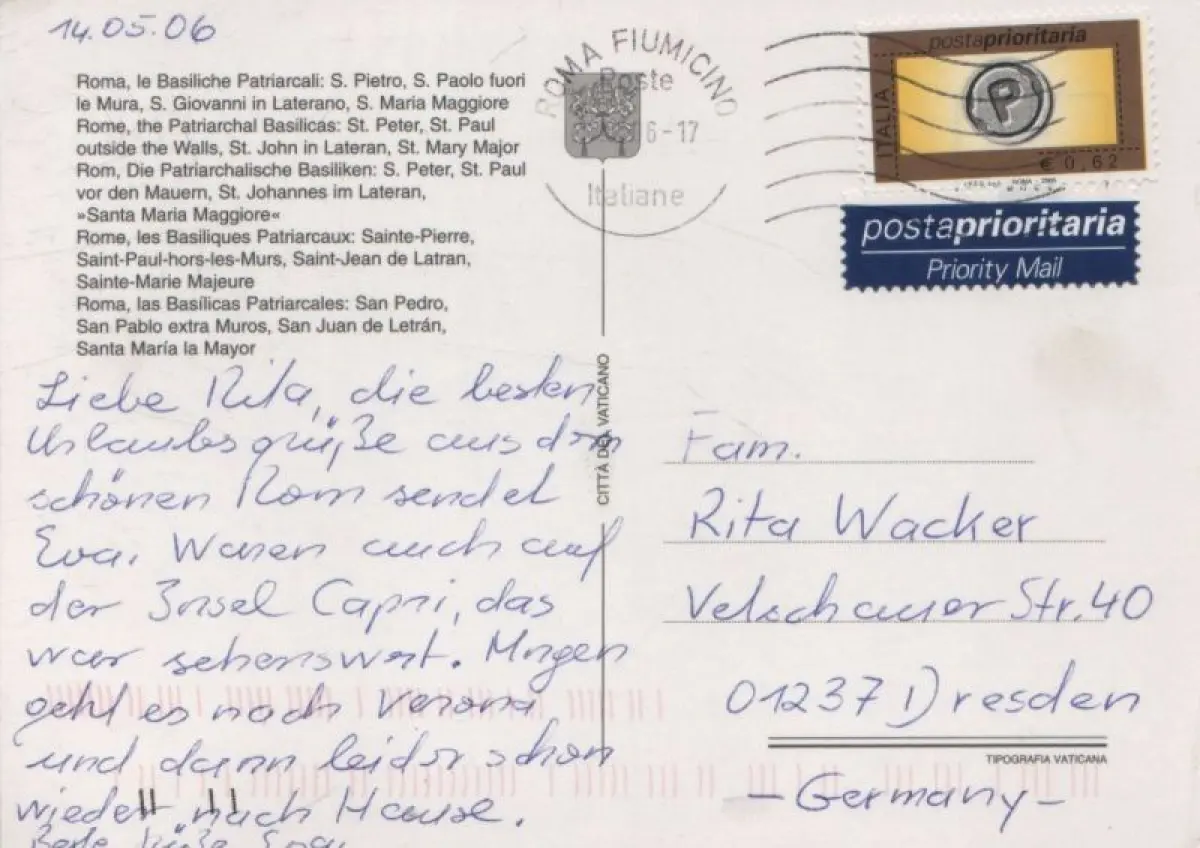 14.05.06
Roma, le Basiliche Patriarcali: S. Pietro, S. Paolo fuori
le Mura, S. Giovanni in Laterano, S. Maria Maggiore
Rome, the Patriarchal Basilicas: St. Peter, St. Paul
outside the Walls, St. John in Lateran, St. Mary Major
Rom, Die Patriarchalische Basiliken: S. Peter, St. Paul
vor den Mauern, St. Johannes im Lateran,
»Santa Maria Maggiore«
Rome, les Basiliques Patriarcaux: Sainte-Pierre,
Saint-Paul-hors-les-Murs, Saint-Jean de Latran,
Sainte-Marie Majeure
Roma, las Basílicas Patriarcales: San Pedro,
San Pablo extra Muros, San Juan de Letrán,
Santa María la Mayor
Liebe Rita, die besten
Urlaubsgrüße aus dem
schönen Rom sendet
Eva. Waren auch auf
der Insel Capri, das
war sehenswert. Morgen
geht es nach Verona
und dann leider schon
wieder nach Hause.
Beste Grüße Eva
CITTÀ DEL VATICANO
ROMA FIUMICINO
Poste
6-17
Italiane
postaprioritaria
ITALIA
P
€ 0,62
postaprioritaria
Priority Mail
Fam.
Rita Wacker
Str. 40
01237 Dresden
TIPOGRAFIA VATICANA
- Germany -